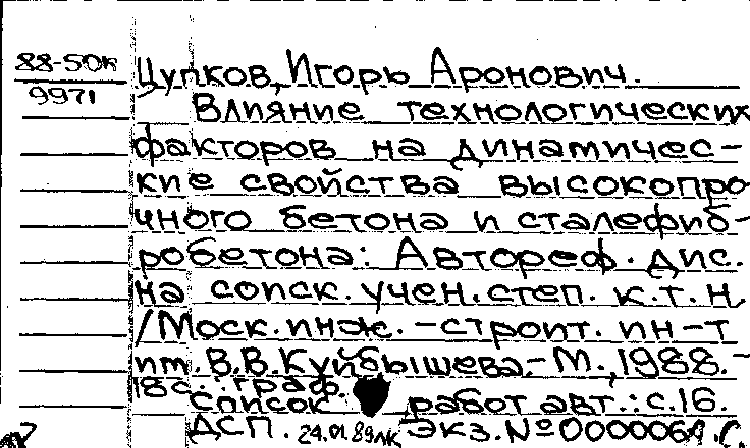 88-50к
9971
Цупков, Игорь Аронович.
Влияние технологических
факторов на динамичес-
кие свойства высокопро
чного бетона и сталефиб-
робетона: Автореф. дис.
на соиск. учен. степ. к.т.н.
/Моск. инж.-строит. ин-т
им. В.В. Куйбышева.- М., 1988.-
18с.: граф.
Список работ авт.: с.16.
ДСП. 24.01.89 Экз. №000006